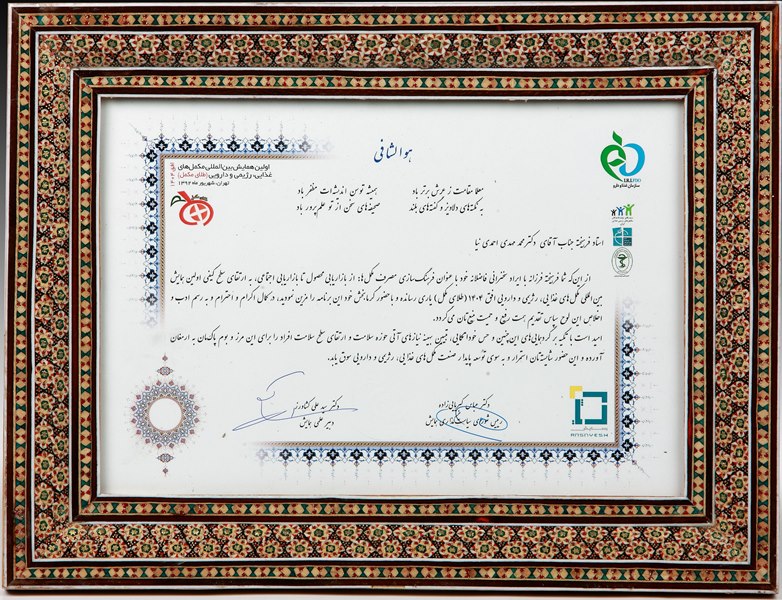 هوالشافی
اولین همایش بین‌المللی مکمل‌های
غذایی، رژیمی و دارویی (طلای مکمل)
تهران، شهریور ماه ۱۳۹۲
سازمان غذا و دارو
معلا مقامت ز عرش برتر باد
همیشه توسن اندیشه‌ات مظفر باد
به نکته‌های دلاویز و گفته‌های بلند
صحیفه‌های سخن از تو علم‌پرور باد
استاد فریخته جناب آقای دکتر محمد مهدی احمدی نیا
از این‌که شما فریخته فرزانه با ایراد سخنرانی فاضلانه خود با عنوان فرهنگ‌سازی مصرف مکمل‌ها: از بازاریابی محصول تا بازاریابی اجتماعی، به ارتقای سطح کیفی اولین همایش
بین‌المللی مکمل‌های غذایی، رژیمی و دارویی افق ۱۴۰۴ (طلای مکمل) یاری رسانده و با حضور گرمابخش خود این برنامه را مزین نمودید، در کمال اکرام و احترام و به رسم ادب و
اخلاص این لوح سپاس تقدیم همت رفیع و حمیت منیع‌تان می‌گردد.
امید است با تکیه بر گردهمایی‌های این‌چنین و حس خوداتکایی، تبیین بهینه نیازهای آتی حوزه سلامت و ارتقای سطح سلامت افراد را برای این مرز و بوم پاک‌مان به ارمغان
آورده و این حضور شایسته‌تان استمرار و به سوی توسعه پایدار صنعت مکمل‌های غذایی، رژیمی و دارویی سوق یابد.
دکتر عباس کبریایی‌زاده
رییس شورای سیاستگذاری همایش
دکتر سید علی کشاورز
دبیر علمی همایش
ANDNYESH